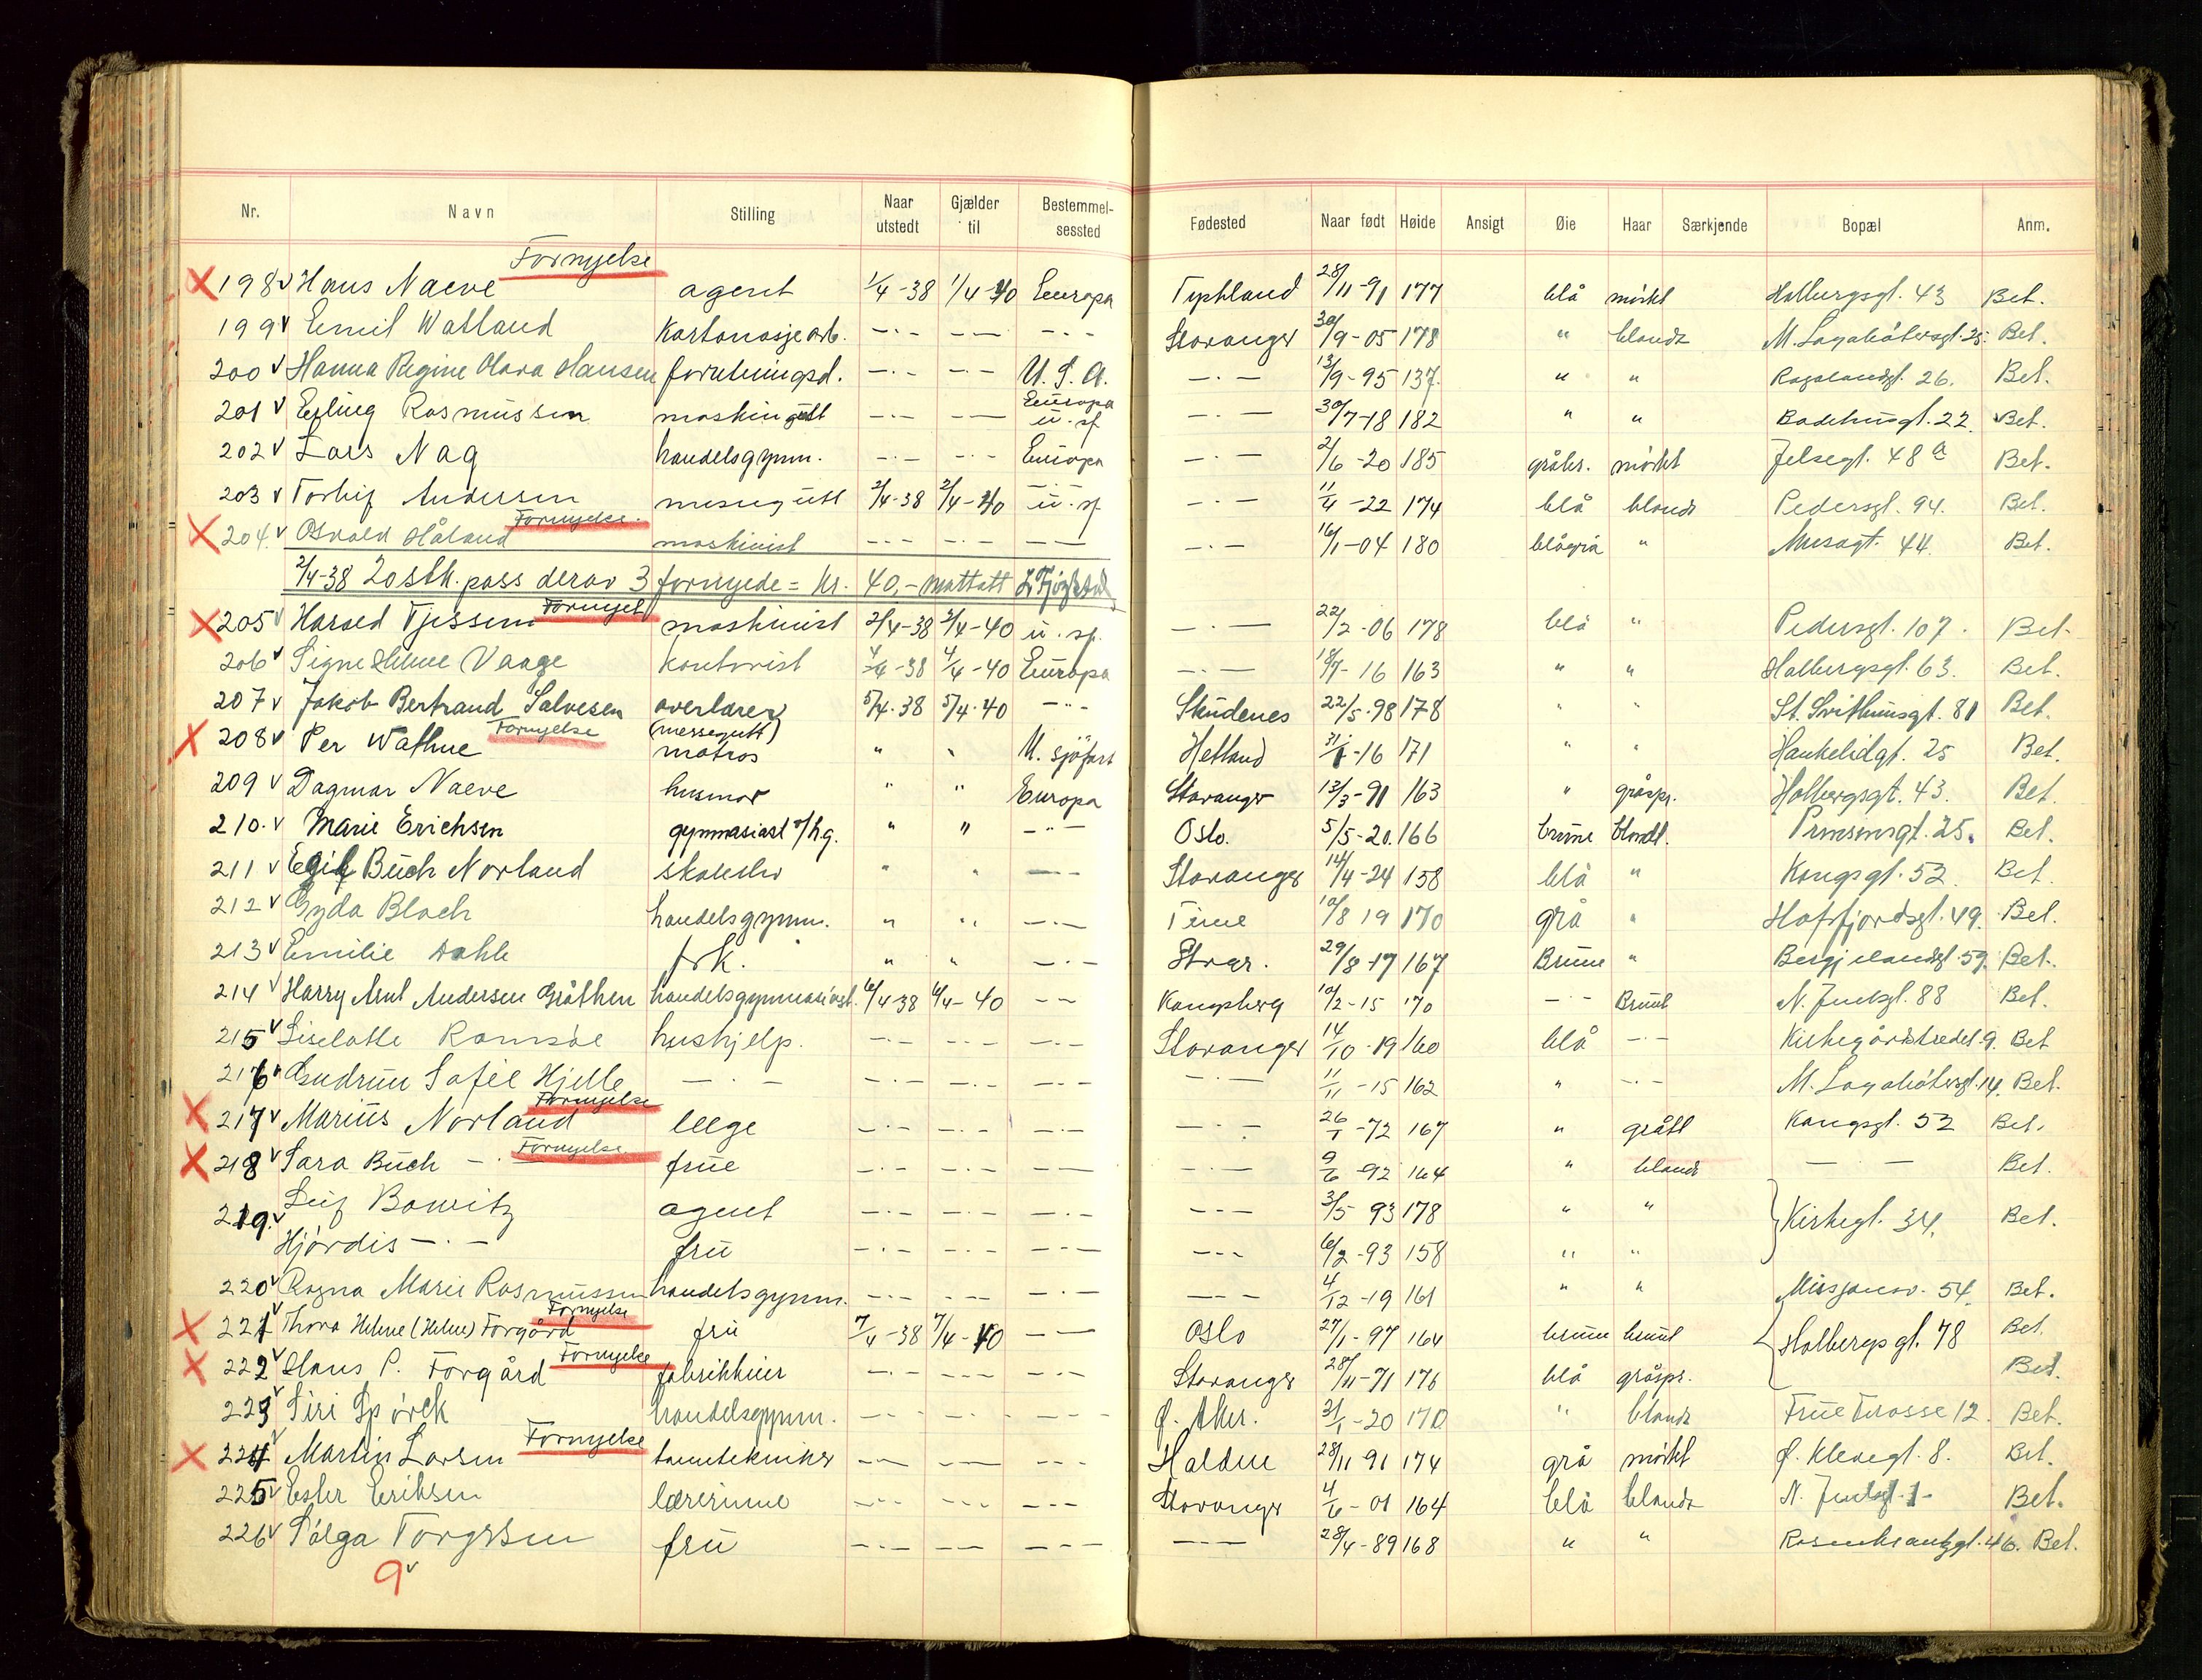 Nr. Navn Stilling Naar utstedt Gjælder til Bestemmelsessted Fødested Naar født Høide Ansigt Øie Haar Særkjende Bopæl Anm.
Fornyelse
198 Hans Naeve agent 1/4-38 1/4-40 Europa Tyskland 28/11-91 177 blå mörkt Holbergsgt. 43 Bet.
199 Emil Watland Kartonasjearb. —·— —— —·— Stavanger 30/9-05 178 " blondt M. Lagabøtersgt. 25. Bet.
200 Hanna Regine Olava Hansen forretningsd. —·— —·— U.S.A. —·— 13/9-95 137 " " Rogalandsgt. 26. Bet.
201 Erling Rasmussen maskingutt —·— —— Europa u. sf. —·— 30/7-18 182 " " Badehusgt. 22. Bet.
202 Lars Nag handelsgymn. —·— —·— Europa —·— 2/6-20 185 gråbr. mörkt Jelsegt. 48a Bet.
203 Torleif Andersen messegutt 2/4-38 2/4-40 —·— u. sf. —·— 11/4-22 174 blå blondt Pedersgt. 94. Bet.
204. Osvald Håland Fornyelse. maskinist —·— —·— —— —·— 16/1-04 180 blågrå " Musegt. 44. Bet.
2/4-38 20 stk. pass derav 3 fornyede = kr. 40,- mottatt
205 Harald Tjessem Fornyel maskinist 2/4-38 2/4-40 u. sf. —·— 22/2-06 178 blå " Pedersgt. 107. Bet.
206 Signe Helene Vaage kontorist 4/4-38 4/4-40 Europa —·— 18/7-16 163 " " Holbergsgt. 63. Bet.
207 Jakob Bertrand Salvesen overlærer 5/4-38 5/4-40 —"— Skudenes 22/5-98 178 " " St. Svithunsgt. 81 Bet.
208 Per Wathne Fornyelse (messegutt) matros " " U. sjöfart Hetland 31/1-16 171 " " Haukelidgt. 25 Bet.
209 Dagmar Naeve husmor " " Europa Stavanger 13/3-91 163 " gråspr. Holbergsgt. 43. Bet.
210. Marie Erichsen gymnasiast v/h.g. " " —"— Oslo. 5/5-20. 166 brune blondt. Prinsensgt. 25. Bet.
211 Egil Buch Norland skoleelev " " —·— Stavanger 14/4-24 158 blå " Kongsgt. 52. Bet.
212 Gyda Bloch handelsgymn. " " —·— Time 10/8 19 170 grå " Hafrfjordsgt. 49. Bet.
213 Emilie Dahle frk. " " —·— Stvgr. 29/8-17 167 Brune " Bergjelandsgt. 59. Bet.
214 Harry Arnt Andersen Gråthen handelsgymnasiast. 6/4-38 6/4-40 —— Kongsberg 10/2-15 170 —·— Brunt N. Juelsgt. 88 Bet.
215 Liselotte Ramsöe hushjelp. —·— —·— —·— Stavanger 14/10-19 160 blå —·— Kirkegårdstredet. 9. Bet
216 Gudrun Sofie Hjelle —·— —·— —·— —·— —·— 11/11-15 162 " —·— M. Lagabötersgt. 14. Bet.
217 Marius Norland Fornyelse lege —·— —·— —·— —·— 26/1-72 167 " grått Kongsgt. 52 Bet.
218 Sara Buch —·— Fornyelse frue —·— —·— —— —·— 9/6-92 164 " blondt — — Bet.
219. Leif Bowitz agent —·— —·— —·— —·— 3/5 93 178 " " Kirkegt. 34. Bet.
Hjördis —·— fru —·— —·— —·— —·— 6/2-93 158 " "
220 Ragna Marie Rasmussen handelsgymn. —·— —·— —·— —·— 4/12-19 161 " " Misjonsv. 54. Bet.
221 Thora Helene (Helene) Torgård Fornyelse fru 7/4-38 7/4-40 —·— Oslo 27/1-97 164 brune brunt Holbergsgt. 78 Bet.
222 Hans P. Torgård Fornyelse fabrikkeier —·— —·— —·— Stavanger 28/11-71 176 blå gråspr. Bet.
223 Siri Spörck handelsgymn. —·— —·— —·— Ø. Aker. 31/1-20 170 " blondt Frue Terasse 12. Bet.
224 Martin Larsen Fornyelse tanntekniker —·— —— —·— Halden 28/11 91 174 grå mörkt Ø. Klevegt. 8. Bet.
225 Ester Eriksen lærerinne —·— —·— —·— Stavanger 4/6-01 164 blå blondt N. Juelsgt. 1- Bet.
226 Solga Torgersen fru —·— —— —·— —·— 28/4-89 168 " " Rosenkrantzgt. 46. Bet.
9